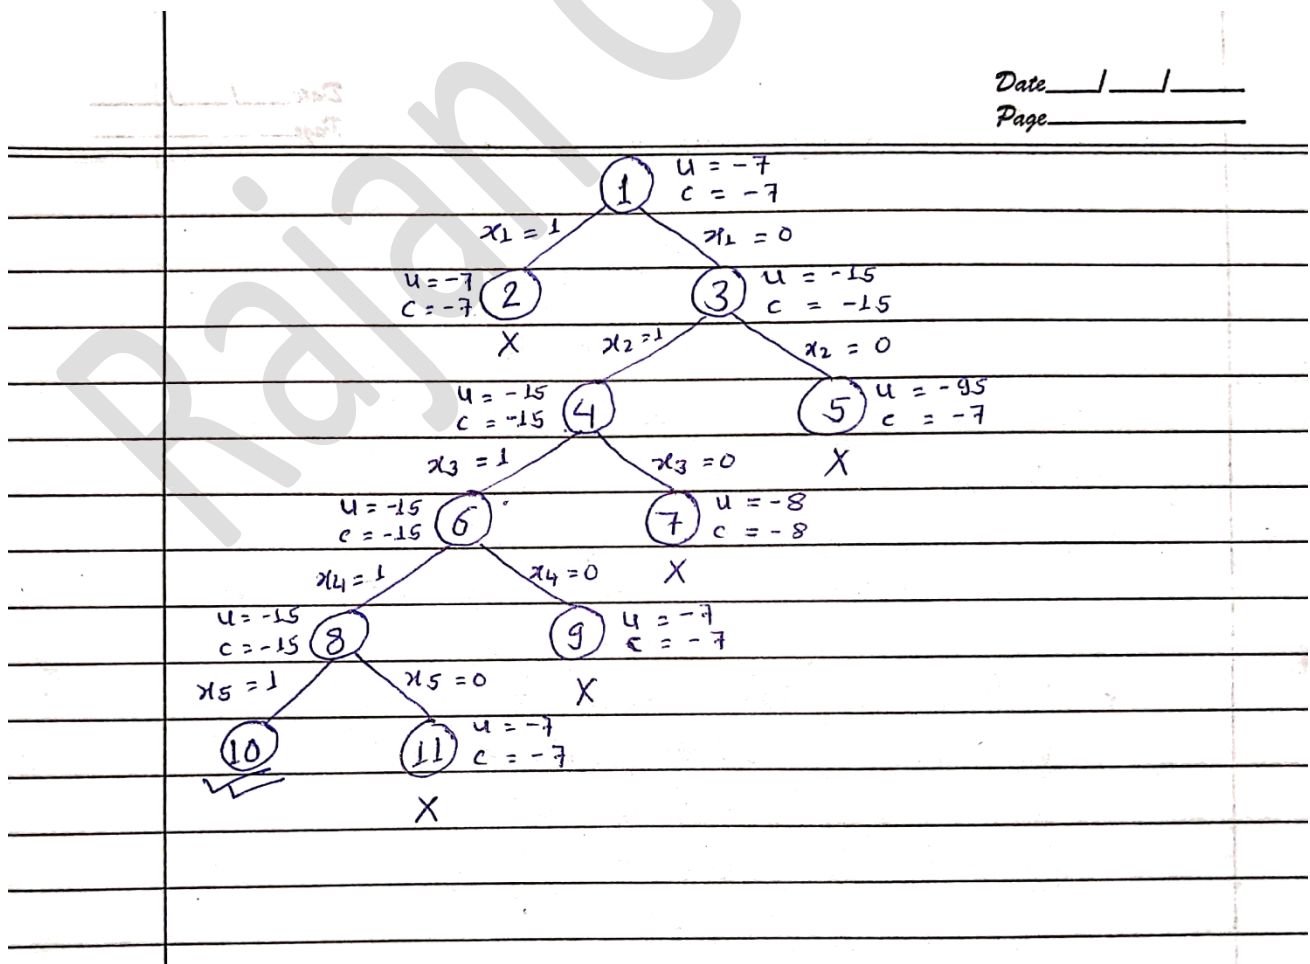 Date__/__/__
Page______
1 u = -7
c = -7
x1 = 1 x1 = 0
u = -7
c = -7 2 3 u = -15
c = -15
X x2 = 1 x2 = 0
u = -15
c = -15 4 5 u = -95
c = -7
x3 = 1 x3 = 0 X
u = -15
c = -15 6 7 u = -8
c = -8
x4 = 1 x4 = 0 X
u = -15
c = -15 8 9 u = -7
c = -7
x5 = 1 x5 = 0 X
10 11 u = -7
c = -7
X
Rajan